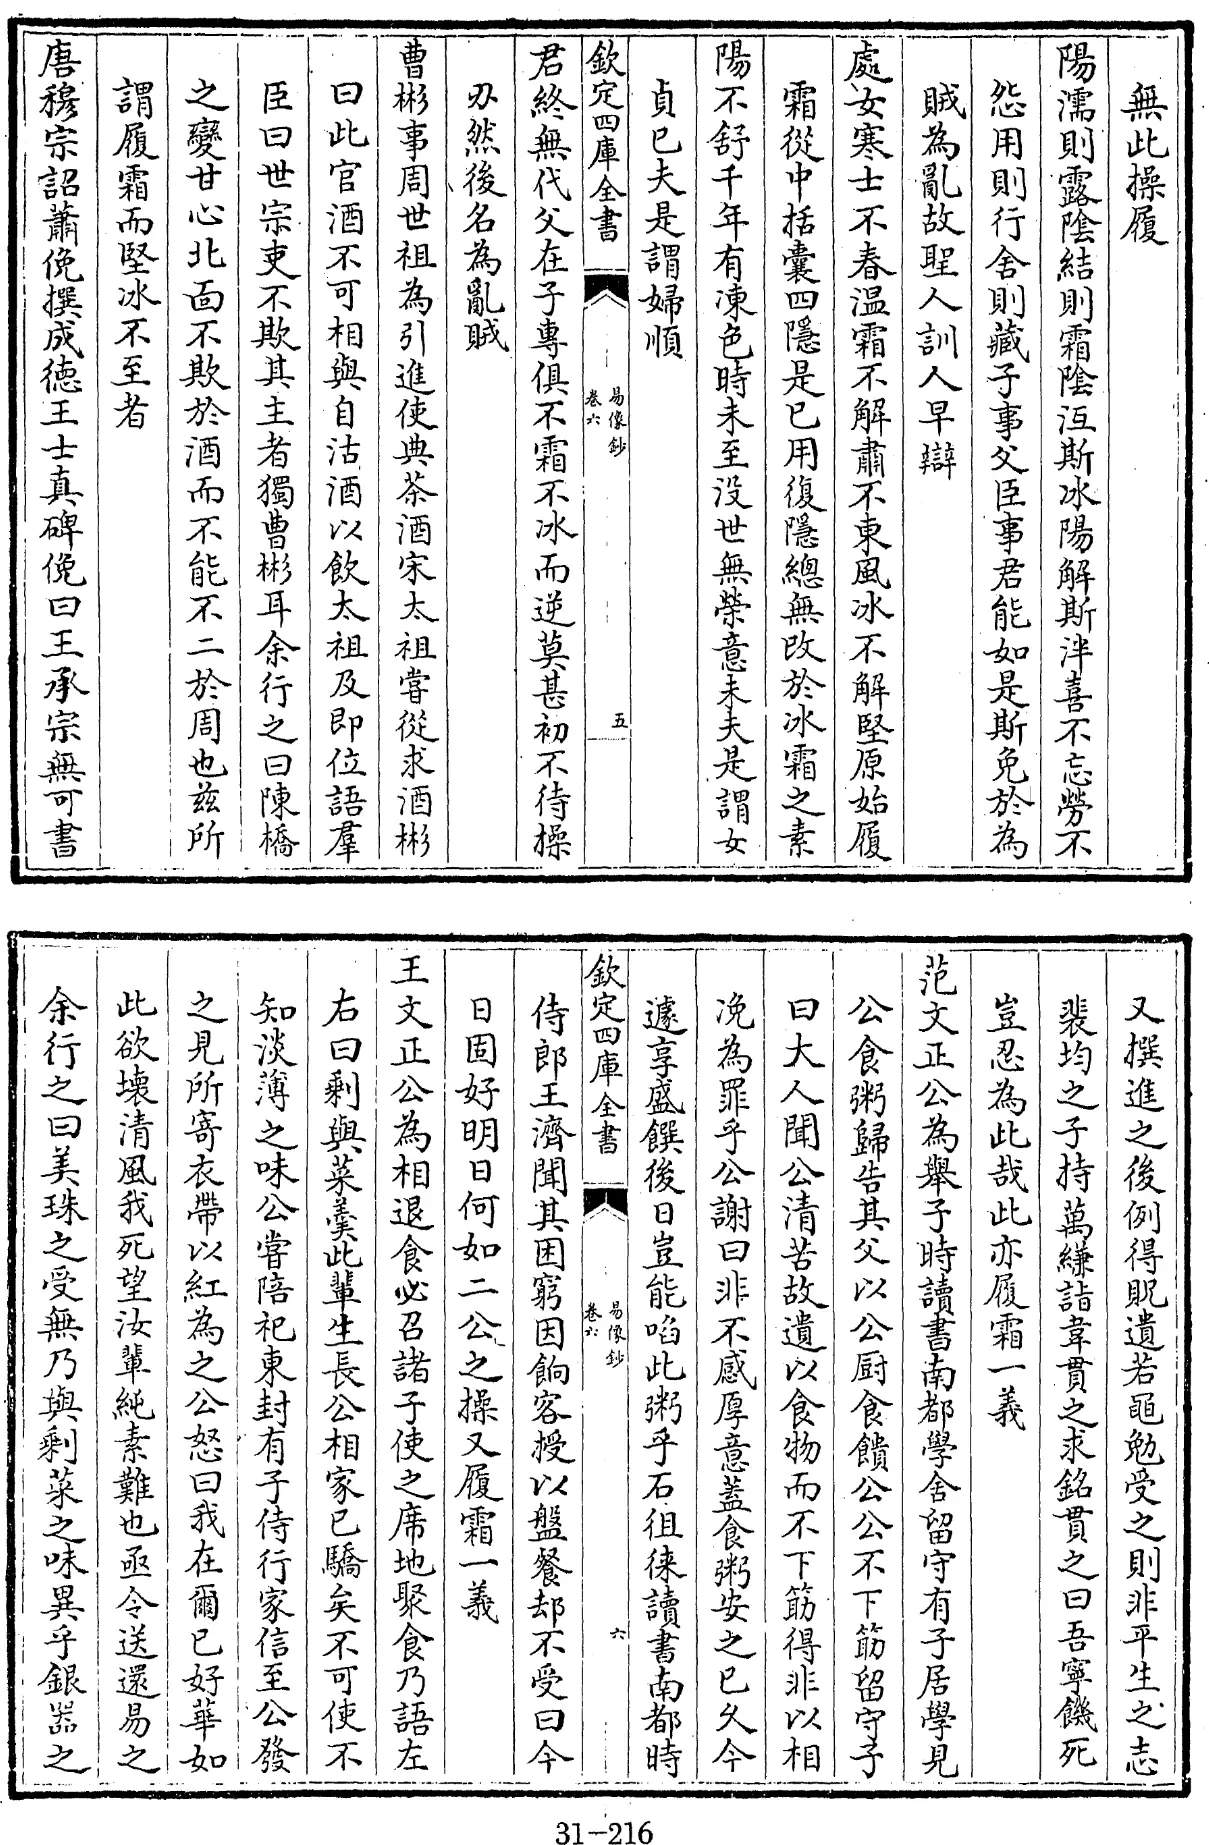 無此操履
陽濡則露陰結則霜陰沍斯冰陽解斯泮喜不忘勞不
怨用則行舍則藏子事父臣事君能如是斯免於為
賊為亂故聖人訓人早辯
處女寒士不春温霜不解肅不東風冰不解堅原始履
霜從中括囊四隱是已用復隱總無改於冰霜之素
陽不舒千年有凍色時未至没世無榮意未夫是謂女
貞已夫是謂婦順
欽定四庫全書
易像鈔
卷六
五
君終無代父在子專俱不霜不冰而逆莫甚初不待操
刃然後名為亂賊
曹彬事周世祖為引進使典茶酒宋太祖嘗從求酒彬
曰此官酒不可相與自沽酒以飲太祖及即位語羣
臣曰世宗吏不欺其主者獨曹彬耳余行之曰陳橋
之變甘心北面不欺於酒而不能不二於周也兹所
謂履霜而堅冰不至者
唐穆宗詔蕭俛撰成徳王士真碑俛曰王承宗無可書
又撰進之後例得貺遺若黽勉受之則非平生之志
裴均之子持萬縑詣韋貫之求銘貫之曰吾寧餓死
豈忍為此哉此亦履霜一義
范文正公為舉子時讀書南都學舍留守有子居學見
公食粥歸告其父以公厨食饋公公不下筯留守子
曰大人聞公清苦故遺以食物而不下筯得非以相
浼為罪乎公謝曰非不感厚意蓋食粥安之已久今
遽享盛饌後日豈能啗此粥乎石徂徠讀書南都時
欽定四庫全書
易像鈔
卷六
六
侍郎王濟聞其困窮因餉客授以盤餐却不受曰今
日固好明日何如二公之操又履霜一義
王文正公為相退食必召諸子使之席地聚食乃語左
右曰剩與菜羹此輩生長公相家已驕矣不可使不
知淡薄之味公嘗陪祀東封有子侍行家信至公發
之見所寄衣帶以紅為之公怒曰我在爾已好華如
此欲壊清風我死望汝輩純素難也亟令送還易之
余行之曰美珠之受無乃與剩菜之味異乎銀器之
31-216